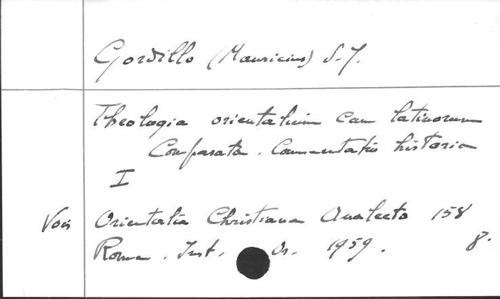 Gordillo (Mauricius) S.J.
Theologia orientalium cum latinorum
Comparata. Commentatio historica
I
Voir Orientalia Christiana Analecta 158
Roma. Inst. Or. 1959. 8.